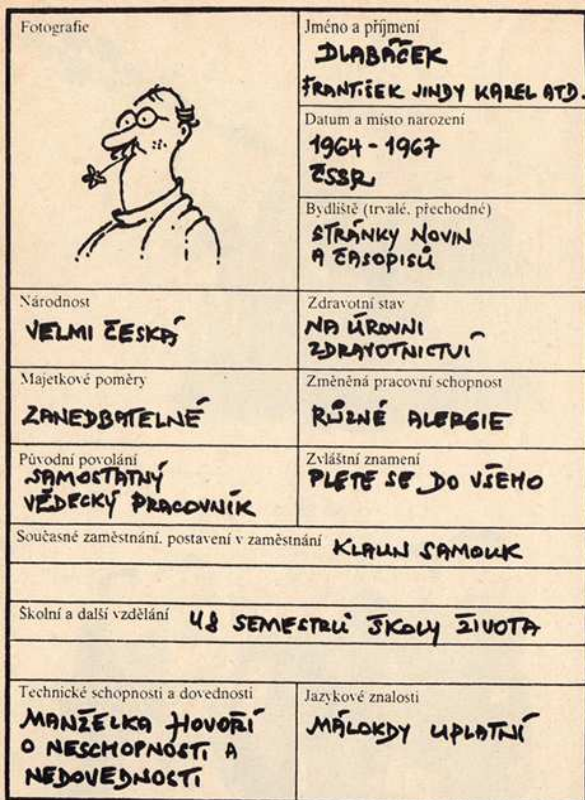 Fotografie
Jméno a příjmení
DLABÁČEK
FRANTIŠEK JINDY KAREL ATD.
Datum a místo narození
1964 - 1967
ČSSR
Bydliště (trvalé, přechodné)
STRÁNKY NOVIN
A ČASOPISŮ
Národnost
VELMI ČESKÁ
Zdravotní stav
NA ÚROVNI
ZDRAVOTNICTVÍ
Majetkové poměry
ZANEDBATELNÉ
Změněná pracovní schopnost
RŮZNÉ ALERGIE
Původní povolání
SAMOSTATNÝ
VĚDECKÝ PRACOVNÍK
Zvláštní znamení
PLETE SE DO VŠEHO
Současné zaměstnání. postavení v zaměstnání KLAUN SAMOUK
Školní a další vzdělání 48 SEMESTRŮ ŠKOLY ŽIVOTA
Technické schopnosti a dovednosti
MANŽELKA HOVOŘÍ
O NESCHOPNOSTI A
NEDOVEDNOSTI
Jazykové znalosti
MÁLOKDY UPLATNÍ